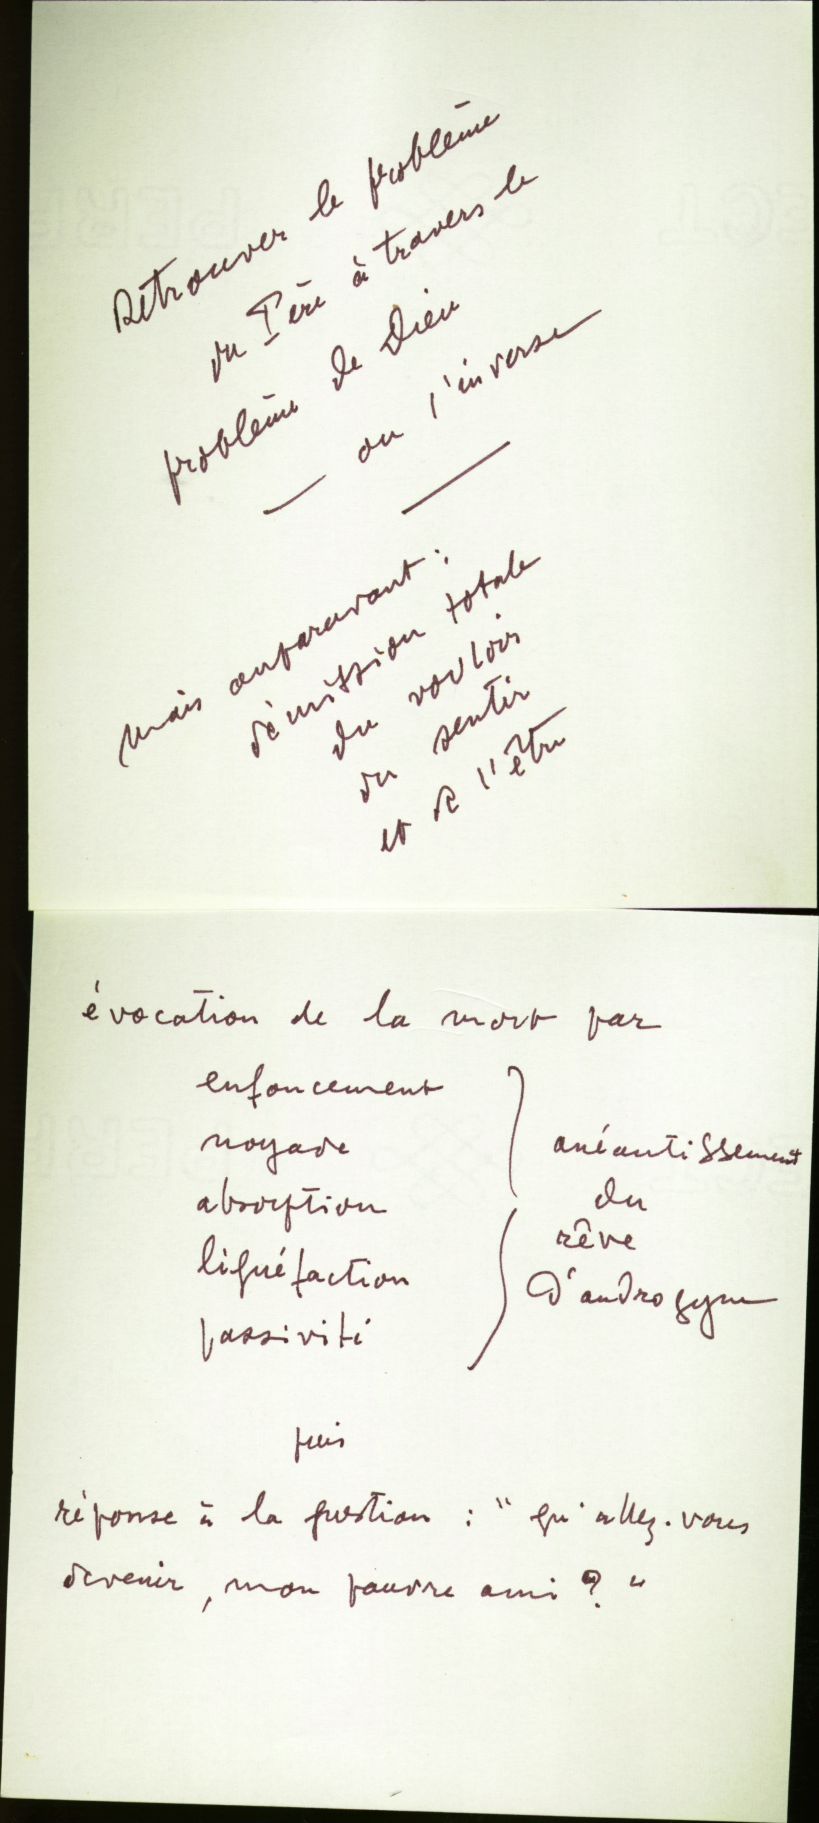 Retrouver le problème
du Père à travers le
problème de Dieu
— ou l'inverse
mais auparavant :
démission totale
du vouloir
du sentir
et de l'être
évocation de la mort par
enfoncement
noyade
absorption
liquéfaction
passivité
anéantissement
du
rêve
d'androgyne
puis
réponse à la question : " qu'allez-vous
devenir, mon pauvre ami ? "